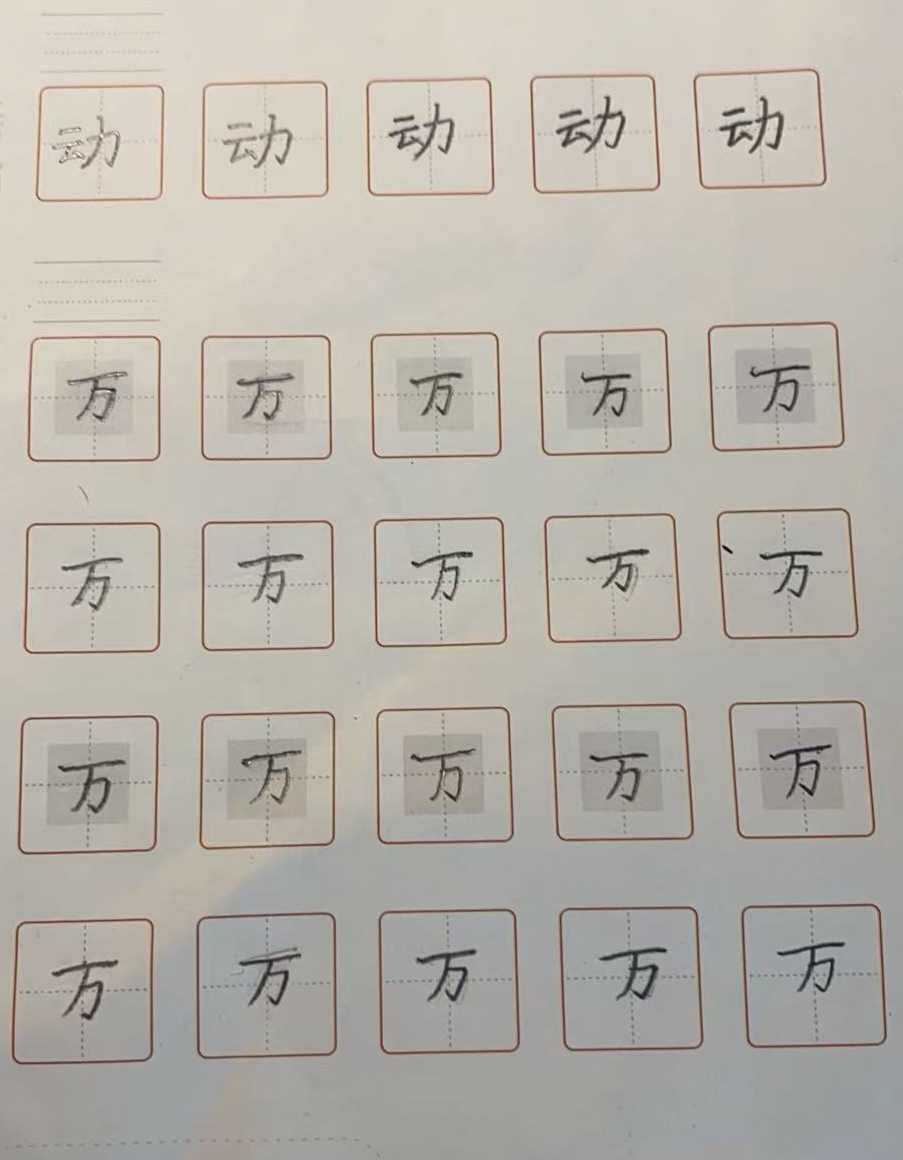 动 动 动 动 动
万 万 万 万 万
万 万 万 万 万
万 万 万 万 万
万 万 万 万 万